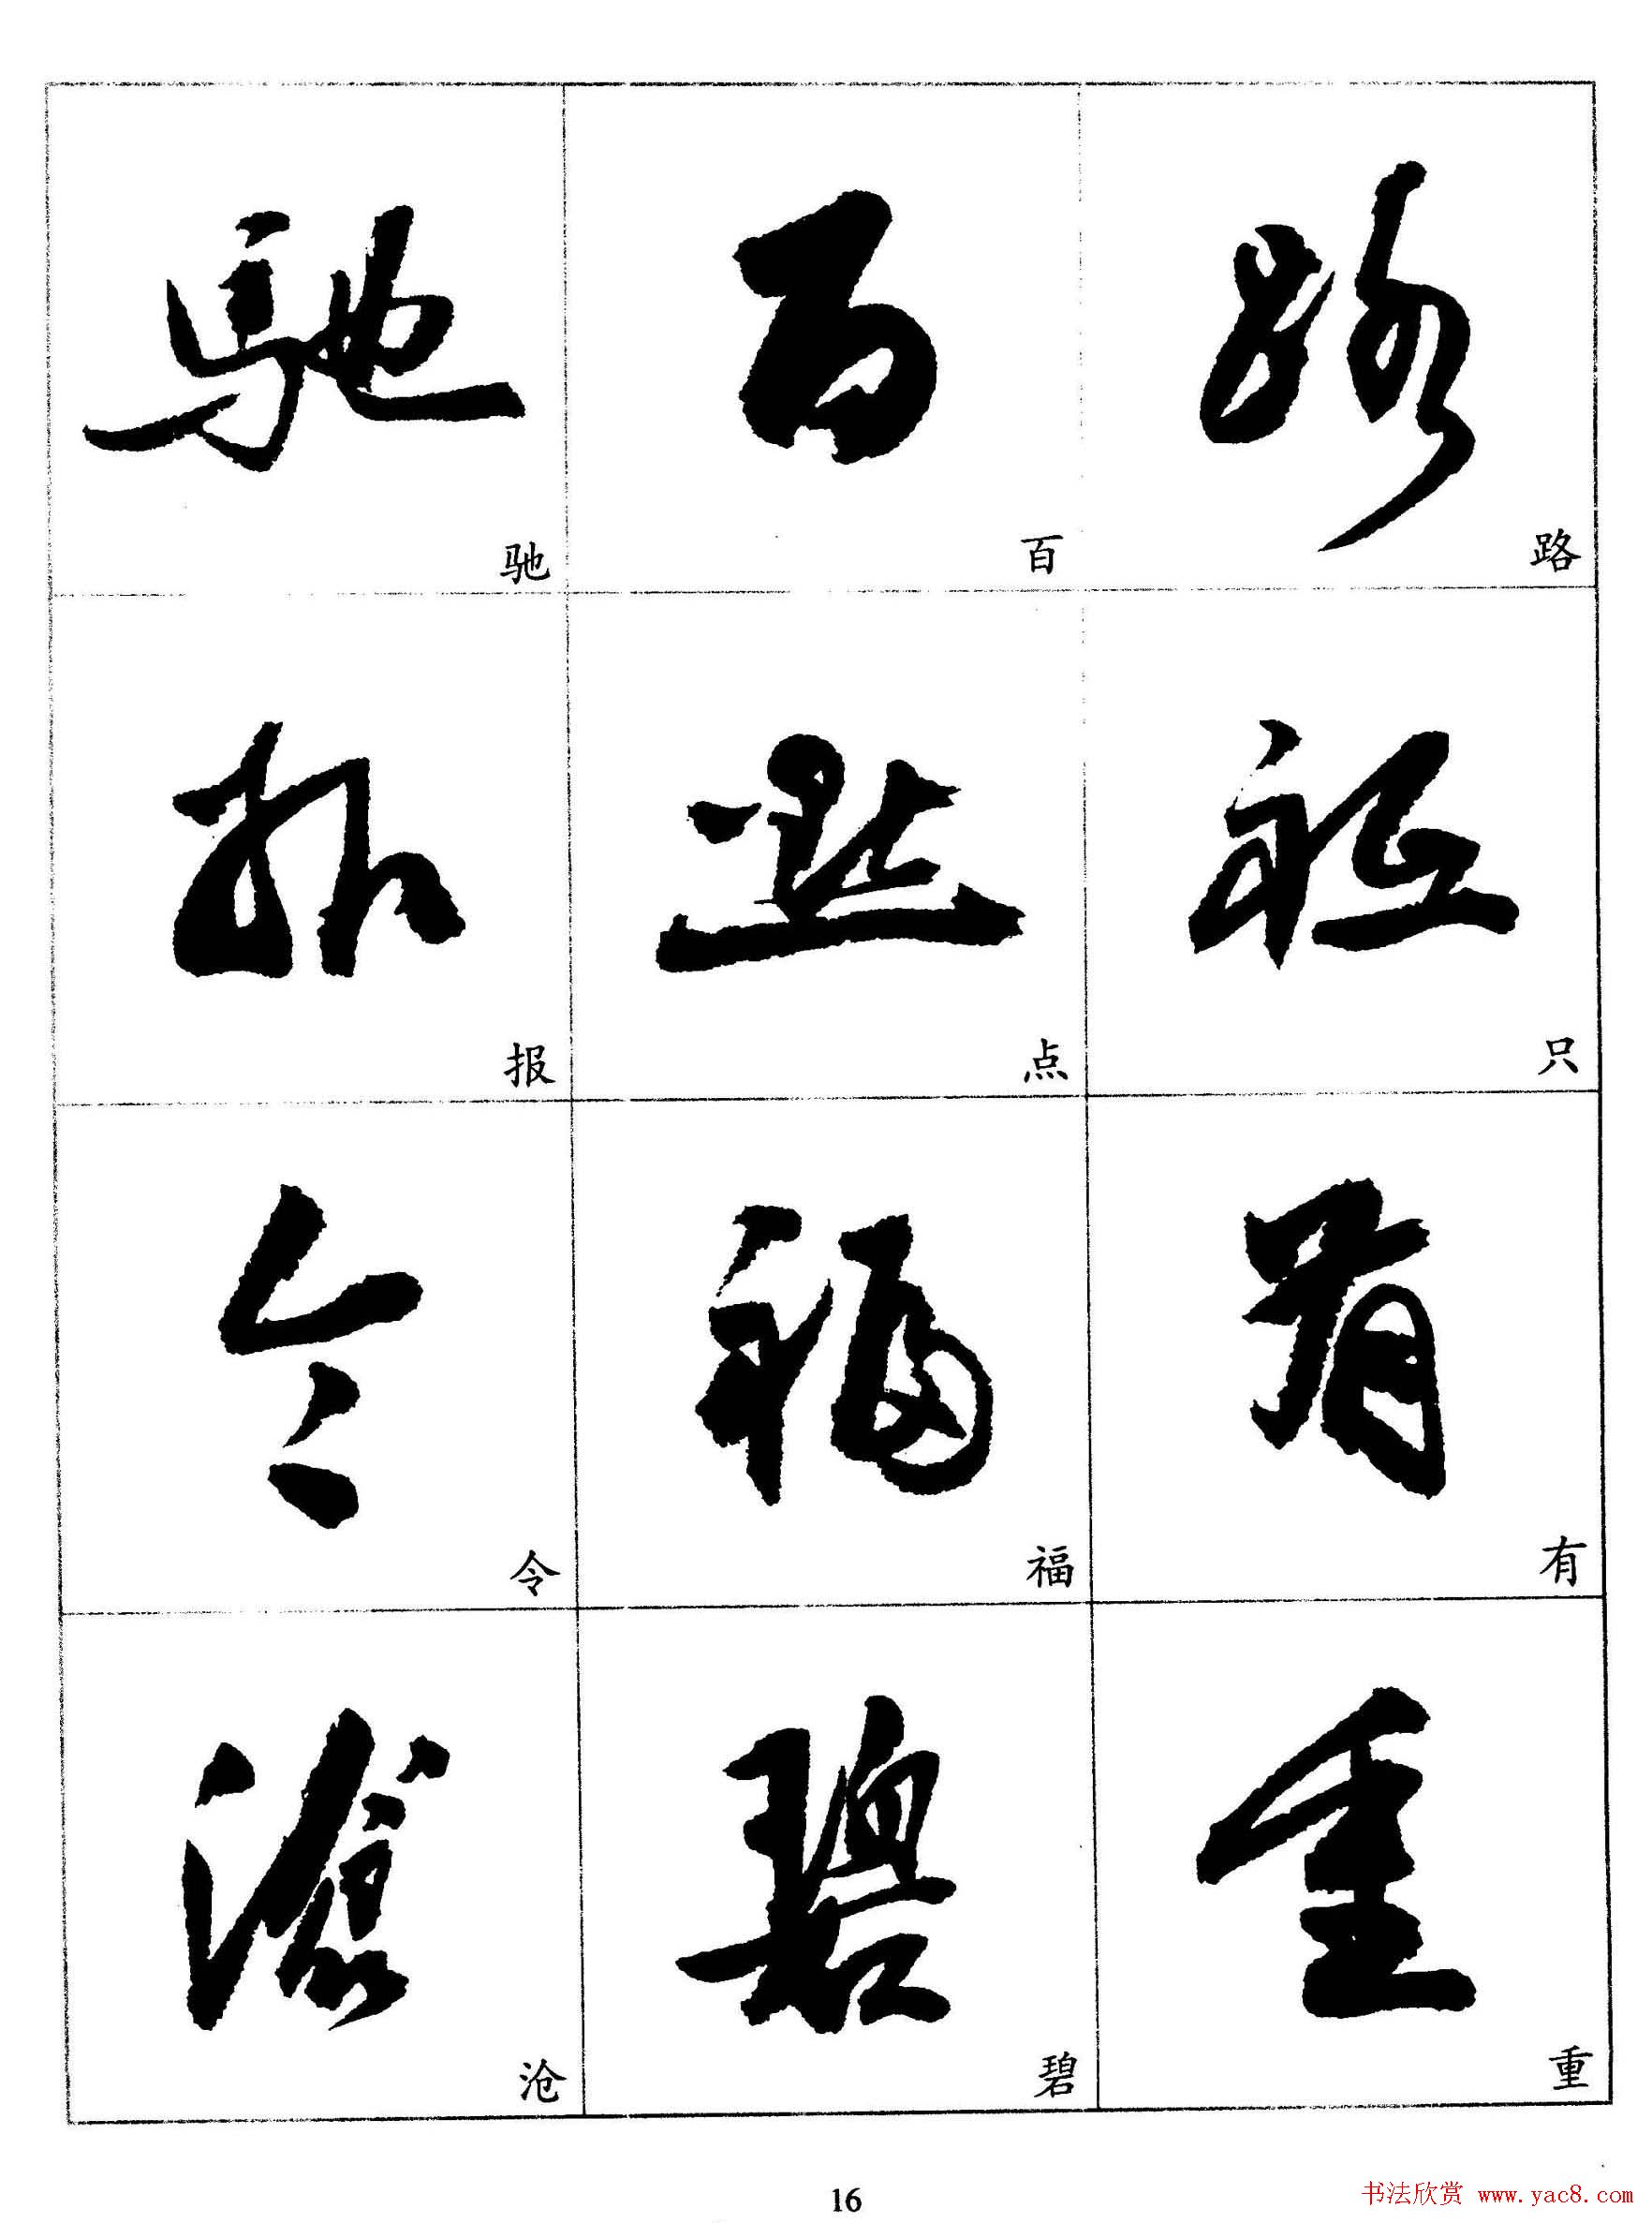 驰 百 路
报 点 只
令 福 有
沧 碧 重
16
书法欣赏 www.yac8.com